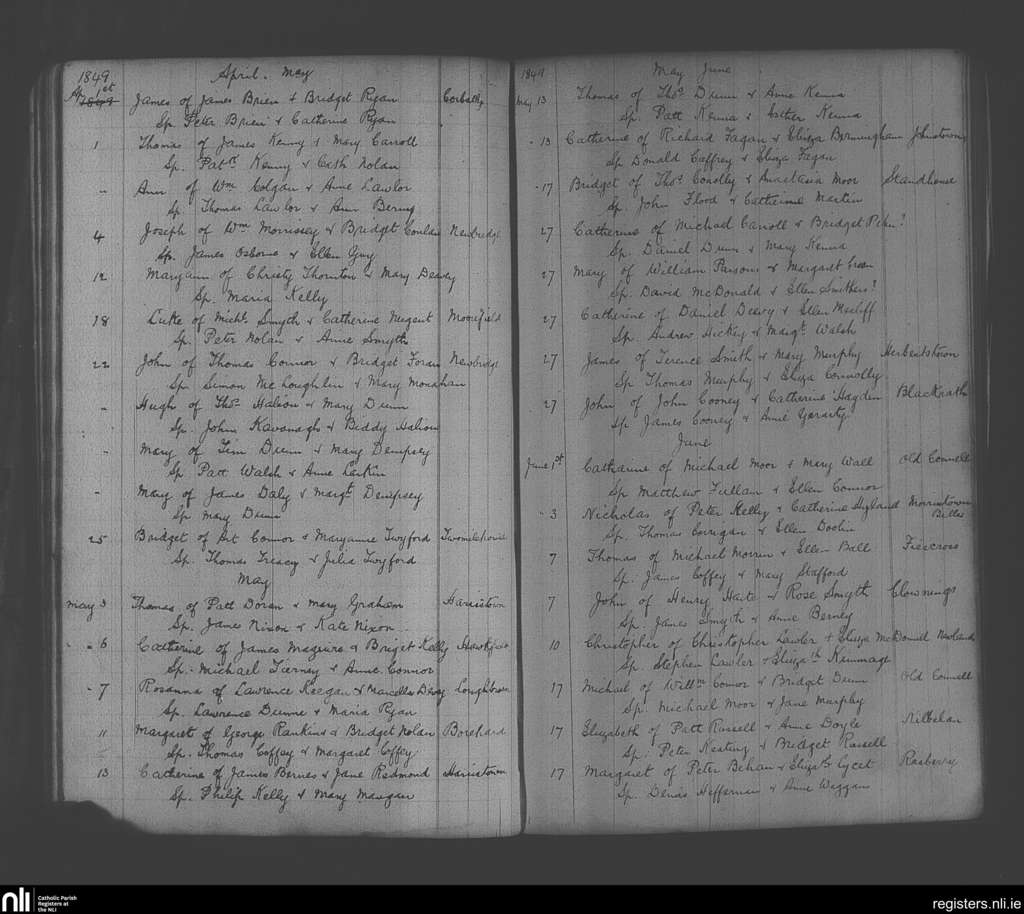 1849
April. May
Ap. 1st James of James Brien + Bridget Ryan Corbally
Sp. Peter Brien & Catherine Ryan
1 Thomas of James Kenny & Mary Carroll
Sp. Patk Kenny & Cath Nolan
" Ann of Wm Colgan & Anne Lawlor
Sp. Thomas Lawlor & Ann Berns
4 Joseph of Wm Morrissey & Bridget Newbridge
Sp. James Osborne & Ellen Guy
12 Maryann of Christy Thornton & Mary Deavy
Sp. Maria Kelly
18 Luke of Michl Smyth & Catherine Nugent Moorefield
Sp. Peter Nolan & Anne Smyth
22 John of Thomas Connor & Bridget Foran Newbridge
Sp. Simon McLoughlin & Mary Monahan
" Hugh of Thos Halion & Mary Dunn
Sp. John Kavanagh & Biddy Halion
" Mary of Tim Dunn & Mary Dempsey
Sp. Patt Walsh & Anne Larkin
" Mary of James Daly & Margt Dempsey
Sp. Mary Dunn
25 Bridget of Pat Connor & Maryanne Twyford Twomilehouse
Sp. Thomas Treacy & Julia Twyford
May
May 3 Thomas of Patt Doran & Mary Graham Harristown
Sp. James Nixon & Kate Nixon
" 6 Catherine of James Maguire & Briget Kelly
Sp. Michael Tierney & Anne Connor
- 7 Rosanna of Lawrence Keegan & Marcella Loughbrown
Sp. Lawrence Dunne & Maria Ryan
11 Margaret of George Rankins & Bridget Nolan Borehard
Sp. Thomas Coffey & Margaret Coffey
13 Catherine of James Bernes & Jane Redmond Harristown
Sp. Philip Kelly & Mary Maugan
1849
May June
May 13 Thomas of Thos Dunn & Anne Kenna
Sp. Patt Kenna & Esther Kenna
- 13 Catherine of Richard Fagan & Eliza Bermingham Johnstown
Sp. Donald Caffrey & Eliza Fagan
- 17 Bridget of Thos Conolly & Anastasia Moor Standhouse
Sp. John Flood & Catherine Martin
27 Catherine of Michael Carroll & Bridget
Sp. Daniel Dunn & Mary Kenna
27 Mary of William Parsons & Margaret Green
Sp. David McDonald & Ellen Smithers?
27 Catherine of Daniel Deevy & Ellen
Sp. Andrew Hickey & Margt Walsh
27 James of Terence Smith & Mary Murphy Herbertstown
Sp Thomas Murphy & Eliza Connolly
- 27 John of John Cooney & Catherine Hayden Blackrath
Sp James Cooney & Anne Geraty
June
June 1st Catharine of Michael Moor & Mary Wall Old Connell
Sp Matthew Fullam & Ellen Connor
- 3 Nicholas of Peter Kelly & Catherine Hyland Morristown Biller
Sp. Thomas Corrigan & Ellen Doolin
7 Thomas of Michael Morrin & Ellen Ball Firecross
Sp. James Coffey & Mary Stafford
7 John of Henry Haite & Rose Smyth Clownings
Sp. James Smyth & Anne Berney
10 Christopher of Christopher Lawler + Eliza McDonnel Newlands
Sp. Stephen Lawler & Elizath Kimmage
17 Michael of Willm Connor & Bridget Dunn Old Connell
Sp. Michael Moor & Jane Murphy
17 Elizabeth of Patt Russell & Anne Doyle
Sp. Peter Keating & Bridget Russell
17 Margaret of Peter Behan & Elizath Rosberry
Sp. Denis Heffernan & Anne Waggan
nli Catholic Parish Registers at the NLI
registers.nli.ie